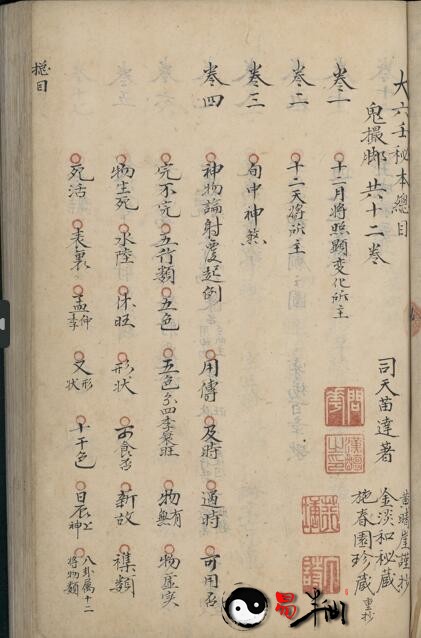 大六壬秘本總目
鬼撮脚 共十二卷
司天苗達著
黃曉崖謹抄
金淡和秘藏
施春園珍藏 重抄
卷一 十二月將照顯變化所主
卷二 十二天將所主
卷三 旬中神煞
卷四 神物論射覆起例 用傳 及時 適時 可用否
完不完 五行類 五色 五色分四季衰旺 物有無 物虛实
物生死 水陸 休旺 形状 可食否 新故 襍類
死活 表裏 孟仲季 又形状 十干色 日辰上神 八卦属十二將物類
總目
易半仙